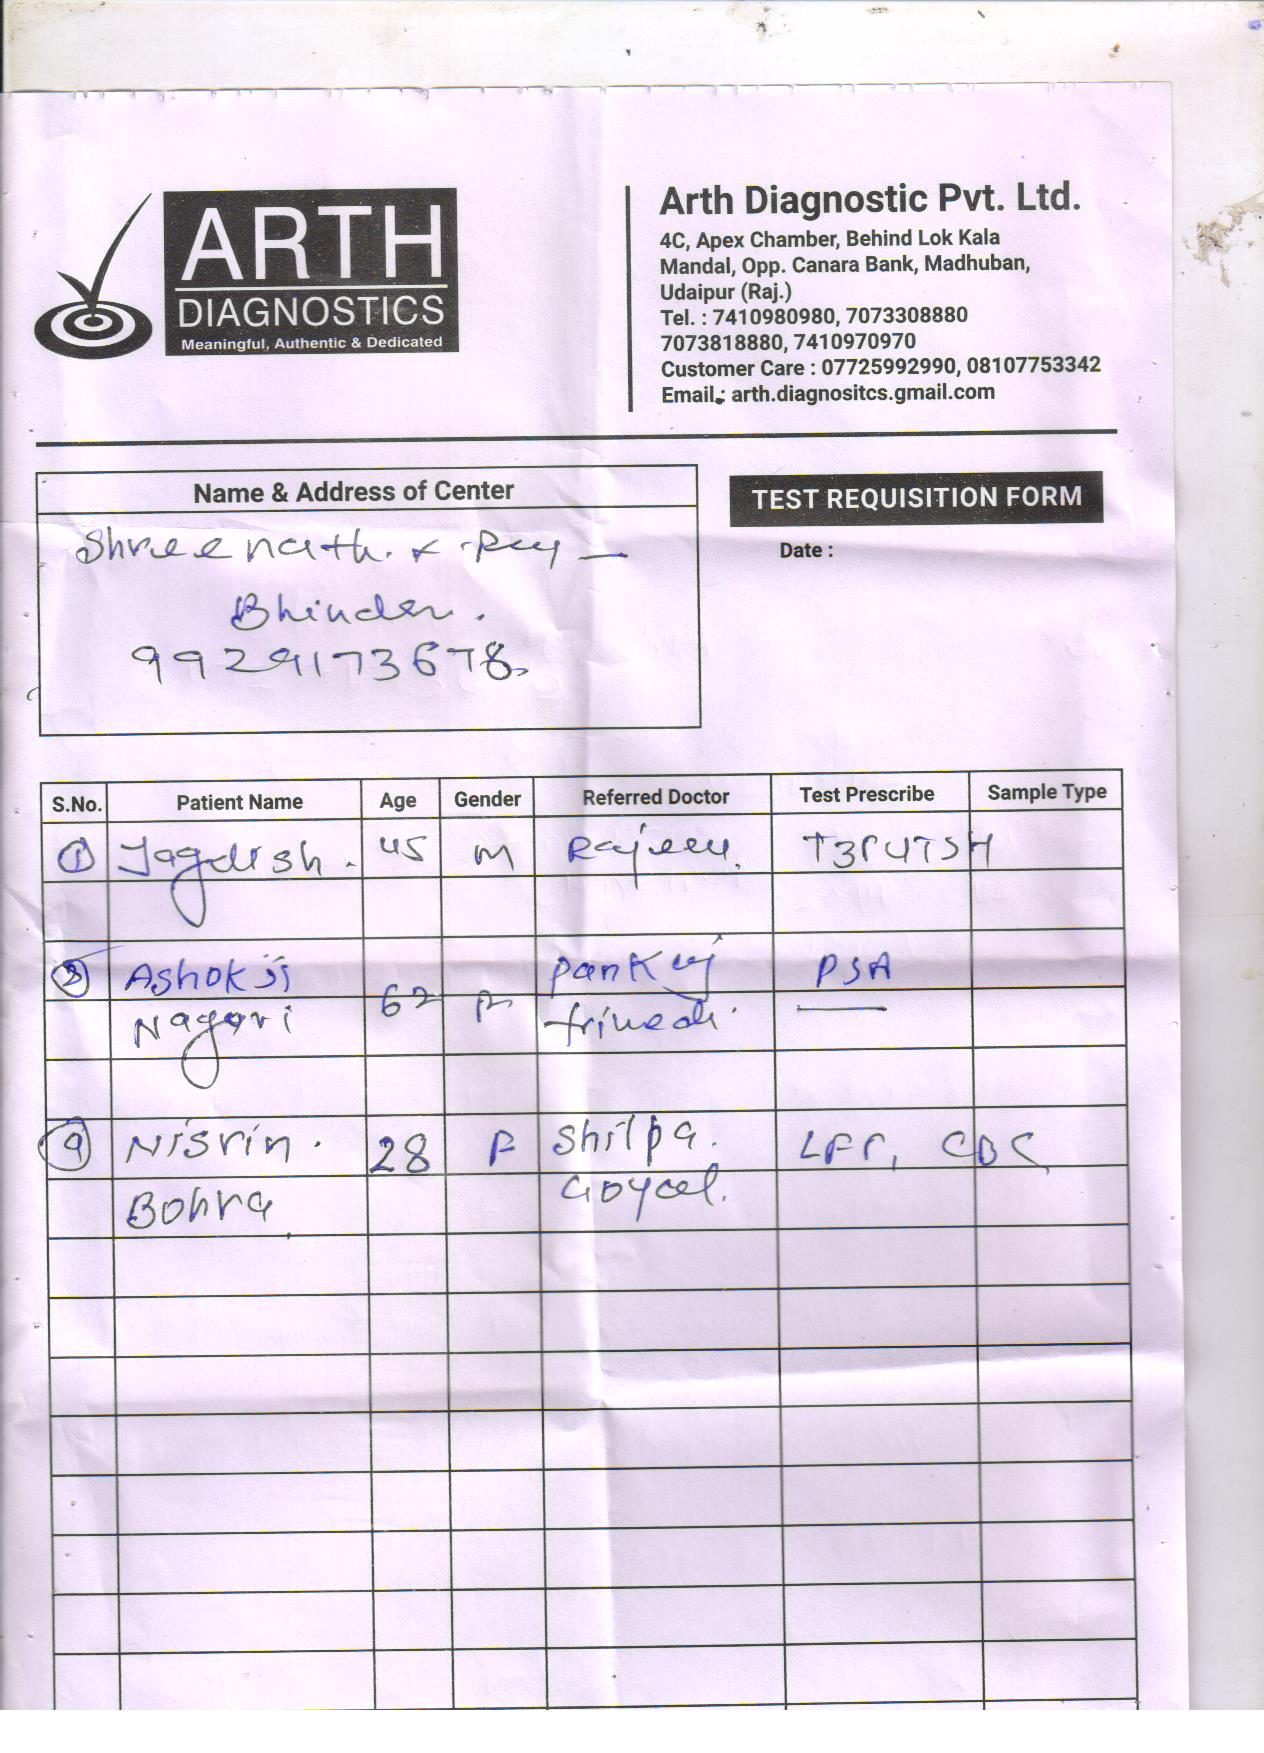 ARTH
DIAGNOSTICS
Meaningful, Authentic & Dedicated
Arth Diagnostic Pvt. Ltd.
4C, Apex Chamber, Behind Lok Kala
Mandal, Opp. Canara Bank, Madhuban,
Udaipur (Raj.)
Tel. : 7410980980, 7073308880
7073818880, 7410970970
Customer Care : 07725992990, 08107753342
Email : arth.diagnositcs.gmail.com
Name & Address of Center
TEST REQUISITION FORM
Date :
Shreenath. x -Ray —
Bhinder.
9929173678.
S.No. Patient Name Age Gender Referred Doctor Test Prescribe Sample Type
1 Jagdish. 45 M Rajeev. T3T4TSH
Ashok Ji Pankaj PSA
Nagori 62 Trivedi.
Nisrin. 28 F Shilpa. LFT, CBC
Bohra Goyal.